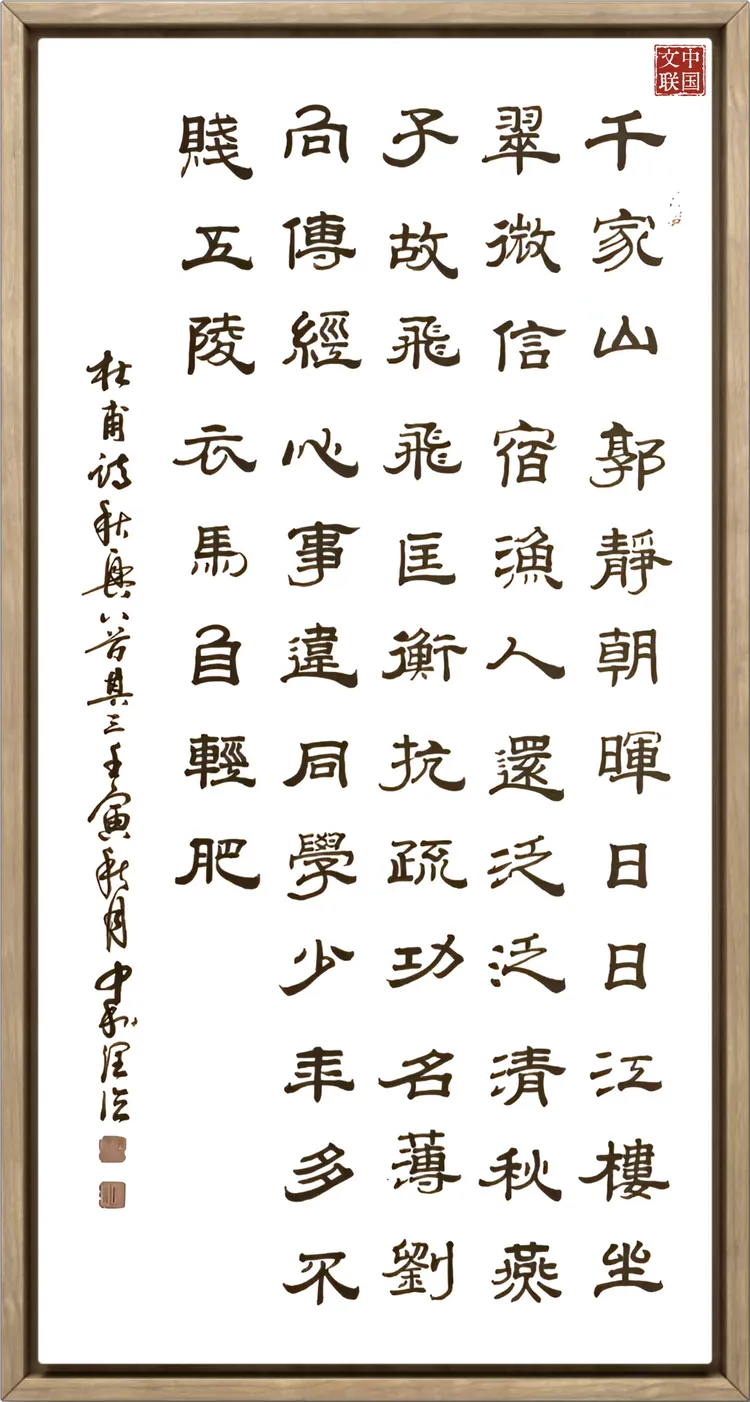 中国
文联
千家山郭靜朝暉日日江樓坐
翠微信宿漁人還泛泛清秋燕
子故飛飛匡衡抗疏功名薄劉
向傳經心事違同學少年多不
賤五陵衣馬自輕肥
杜甫诗秋興八首其三壬寅秋月中